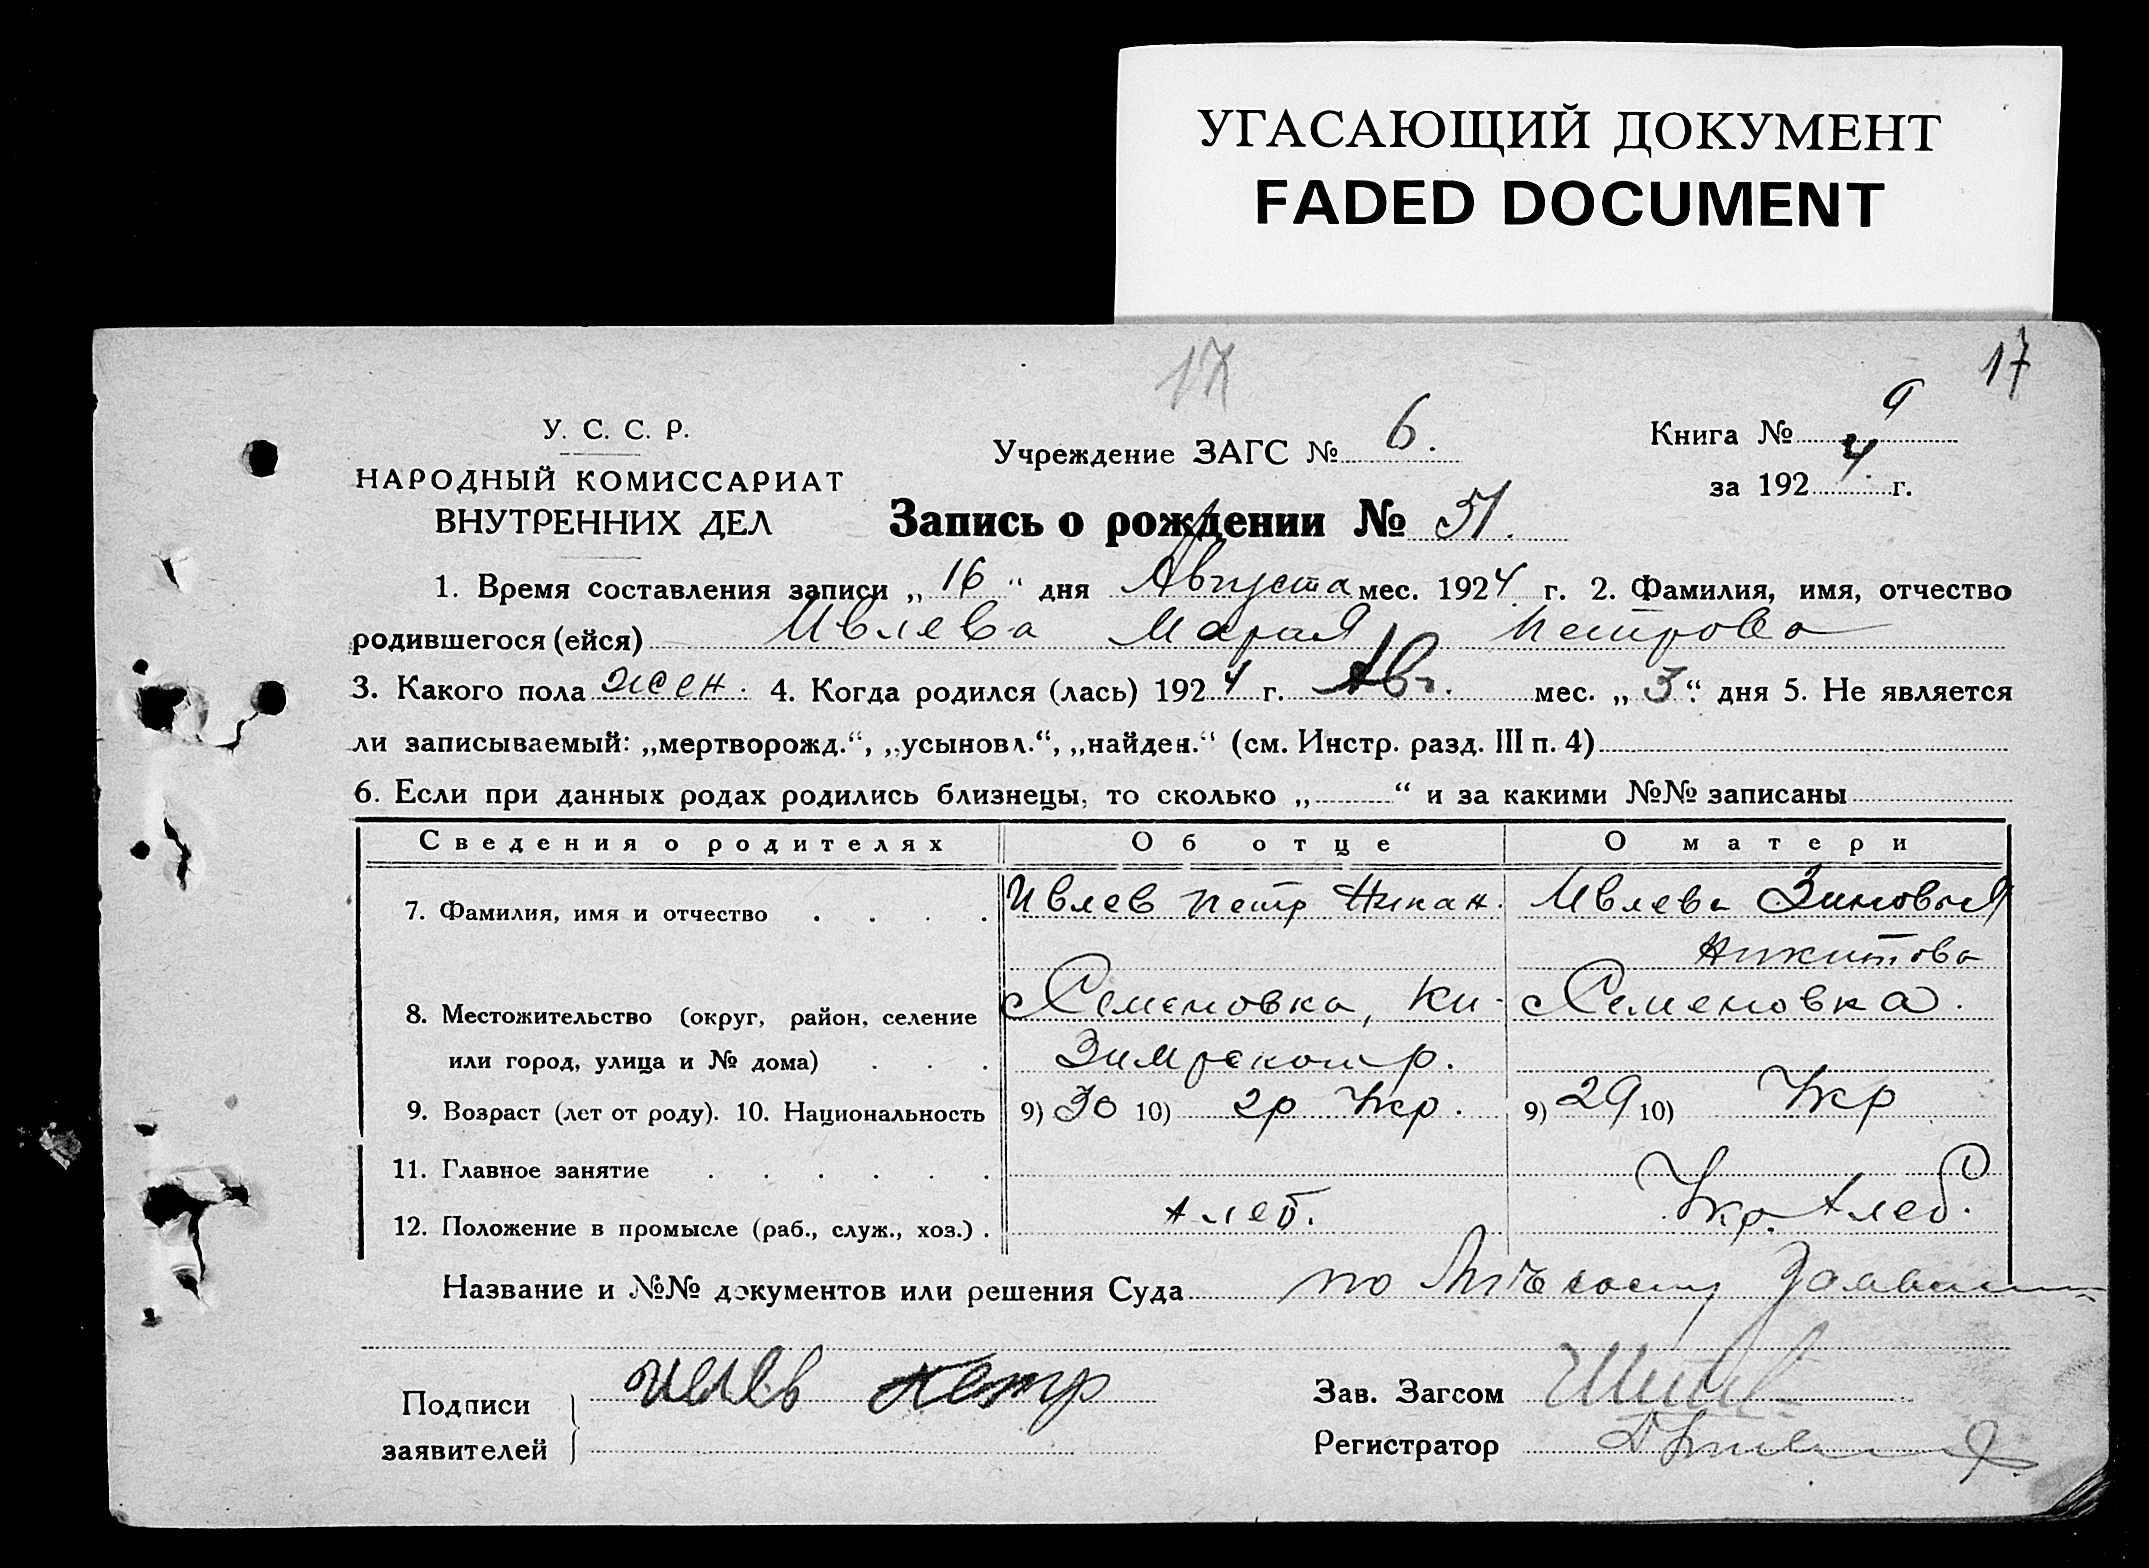 УГАСАЮЩИЙ ДОКУМЕНТ
FADED DOCUMENT
17
17
У. С. С. Р.
НАРОДНЫЙ КОМИССАРИАТ
ВНУТРЕННИХ ДЕЛ
Учреждение ЗАГС № 6.
Книга № 9
за 1924 г.
Запись о рождении № 51.
1. Время составления записи „16“ дня Августа мес. 1924 г. 2. Фамилия, имя, отчество
родившегося (ейся) Ивлева Мария Петрова
3. Какого пола жен. 4. Когда родился (лась) 1924 г. Авг. мес. „3“ дня 5. Не является
ли записываемый: „мертворожд.“, „усыновл.“, „найден.“ (см. Инстр. разд. III п. 4)
6. Если при данных родах родились близнецы, то сколько „ “ и за какими №№ записаны
Сведения о родителях Об отце О матери
7. Фамилия, имя и отчество . . . . Ивлев Петр Никан. Ивлева Зиновья
Никитова
8. Местожительство (округ, район, селение с Семеновка, Ки- с Семеновка.
или город, улица и № дома) . . . р.
9. Возраст (лет от роду). 10. Национальность 9) 30 10) гр Укр. 9) 29 10) Укр
11. Главное занятие . . . . . .
12. Положение в промысле (раб., служ., хоз.) . хлеб. Укр. хлеб.
Название и №№ документов или решения Суда по
Подписи
заявителей
Ивлев Петр
Зав. Загсом
Регистратор